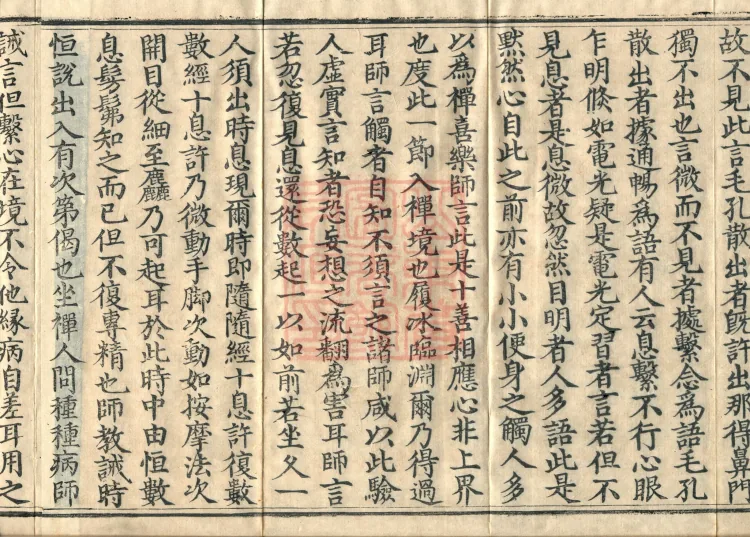 故不見此言毛孔散出者旣許出那得鼻門
獨不出也言微而不見者據繫念爲語毛孔
散出者據通暢爲語有人云息繫不行心眼
乍明倏如電光疑是電光定習者言若但不
見息者是息微故忽然目明者人多語此是
黙然心自此之前亦有小小使身之觸人多
以爲禪喜樂師言此是十善相應心非上界
也度此一節入禪境也履冰臨淵爾乃得過
耳師言觸者自知不須言之諸師咸以此驗
人虛實言知者恐妄想之流翻爲害耳師言
若忽復見息還從數起一以如前若坐久一
人須出時息現爾時即隨隨經十息許復數
數經十息許乃微動手脚次動如按摩法次
開目從細至麤乃可起耳於此時中由恒數
息髣髴知之而已但不復專精也師教誡時
恒説出入有次第偈也坐禪人問種種病師
誡言但繫心在境不令他緣病自差耳用之